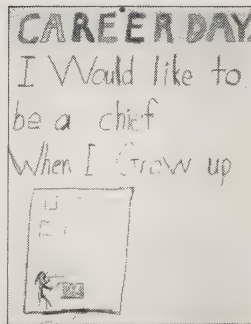 CAREER DAY
I Would like to
be a chief
When I Grow up